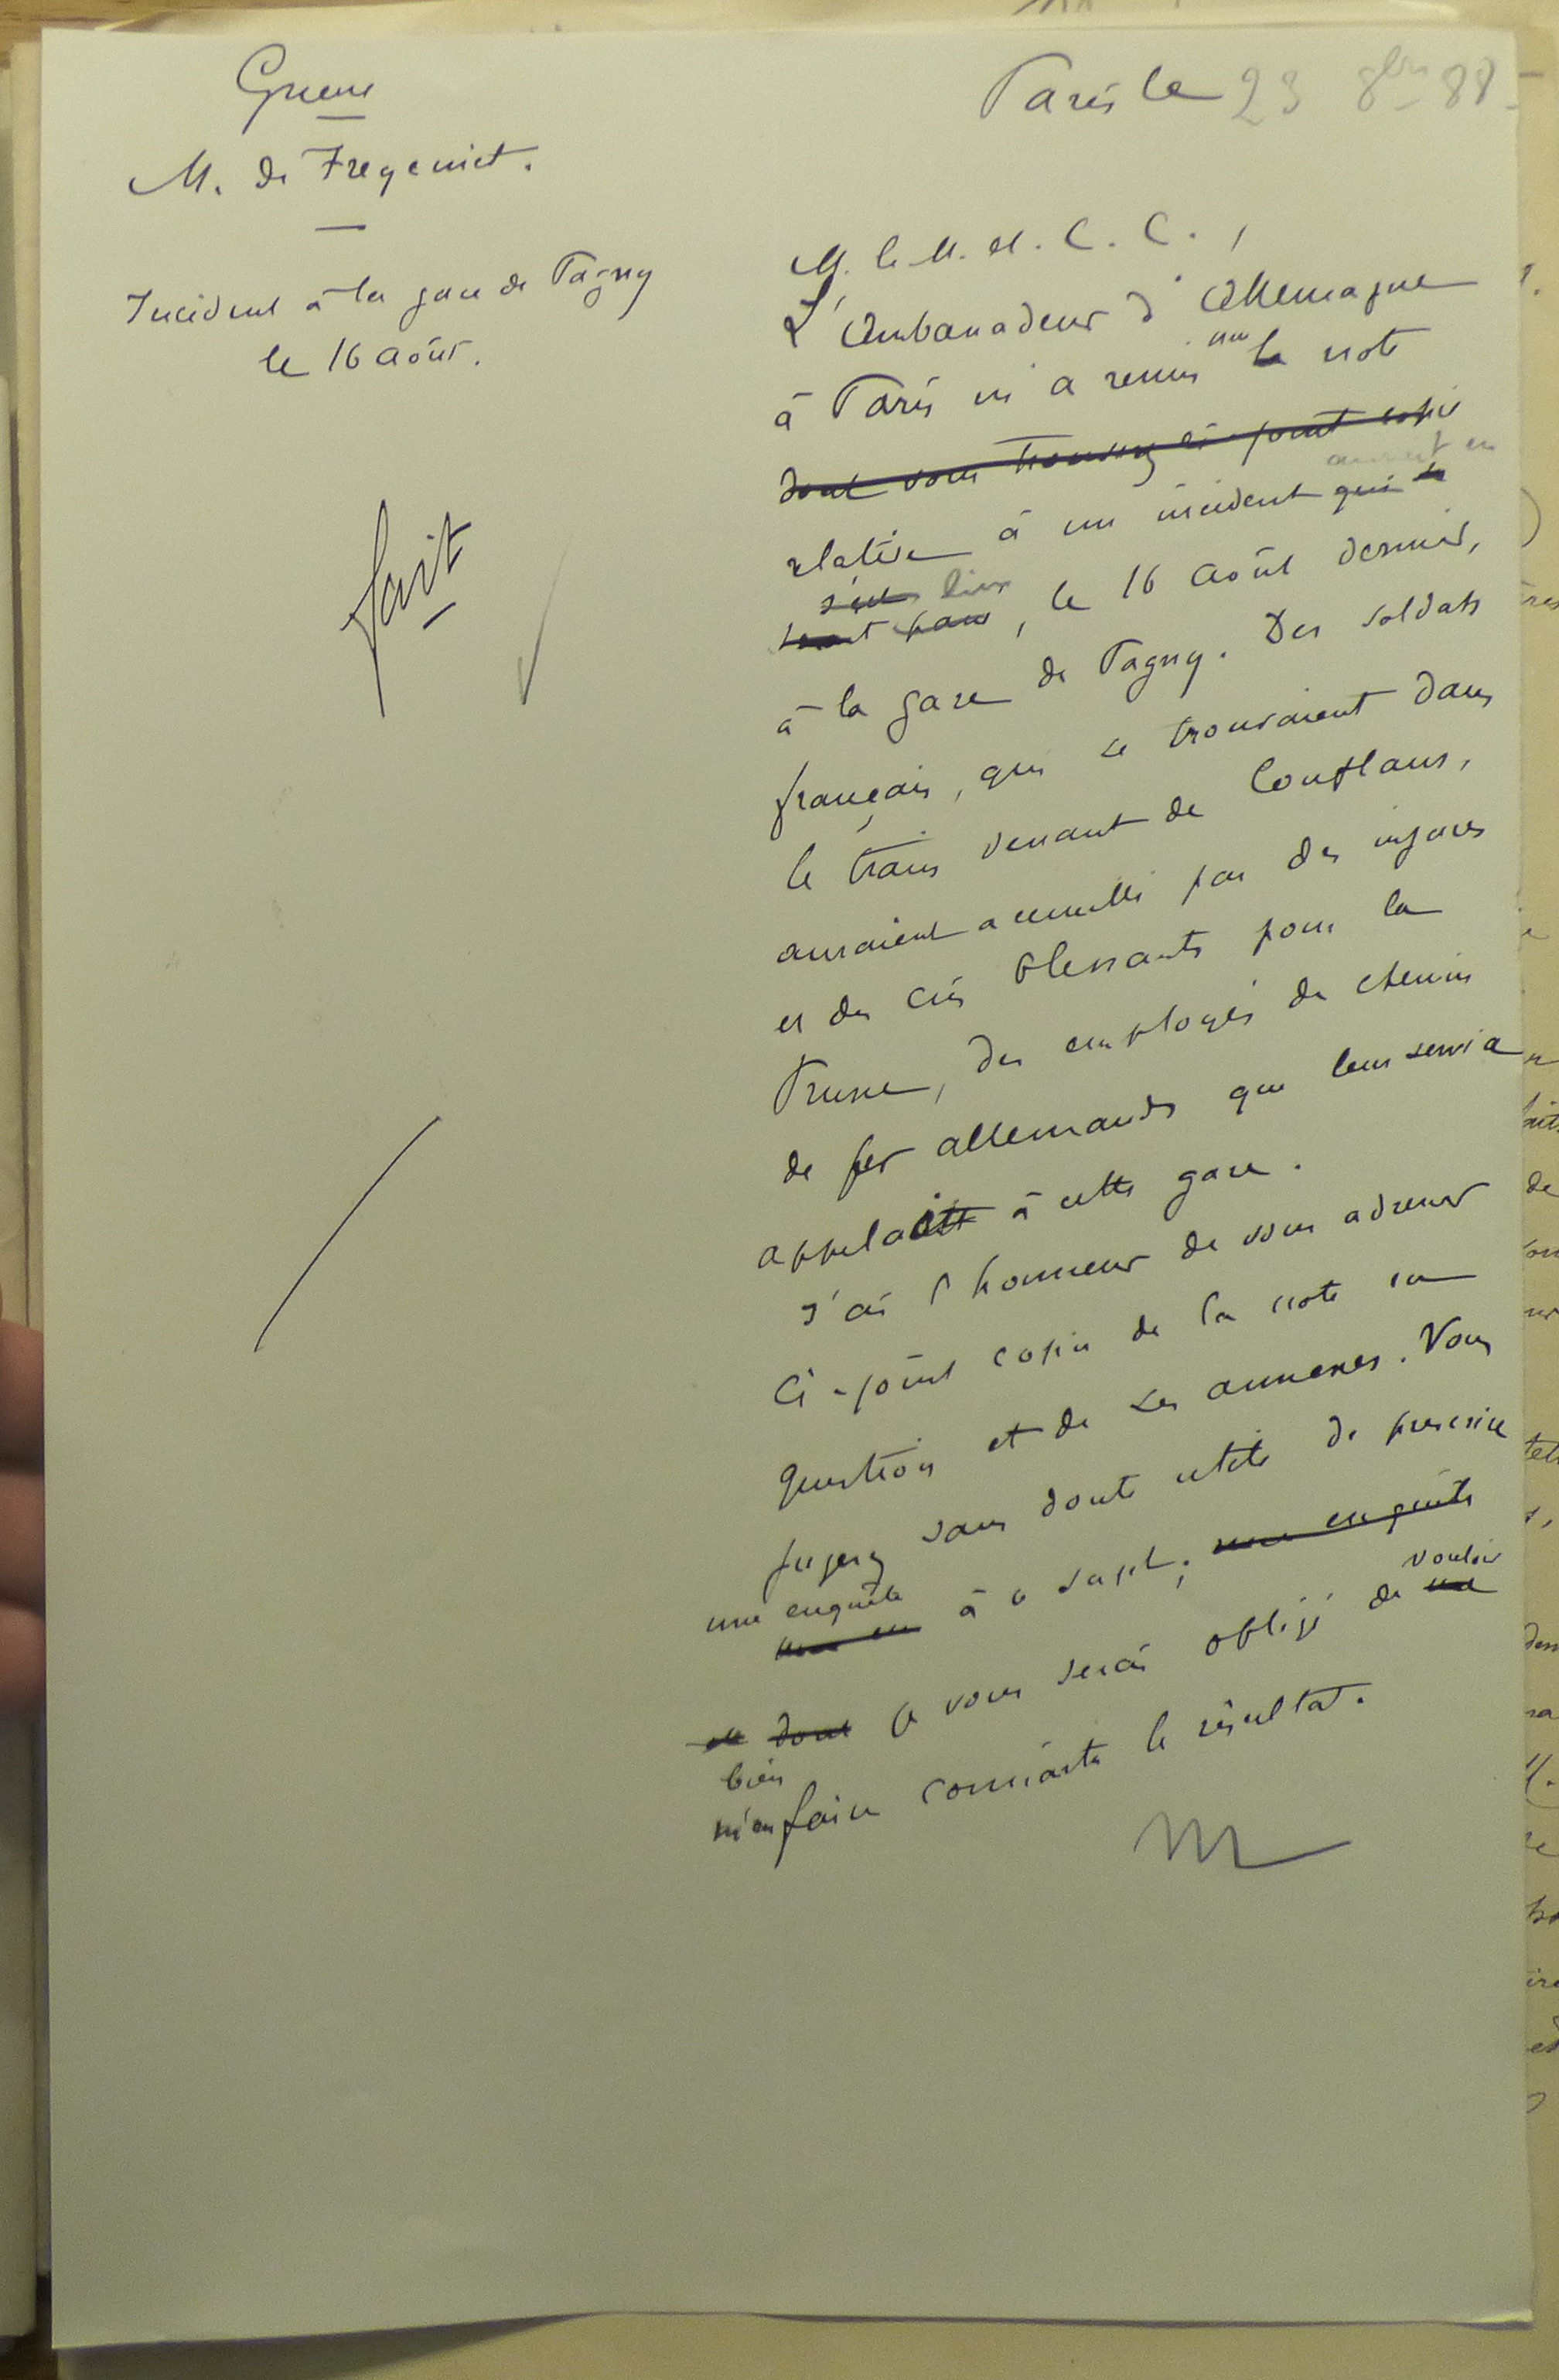 Guerre
M. de Freycinet.
Incident à la gare de Pagny
le 16 Août.
fait
Paris le 23 8bre 88
M. le M. et C. C.,
L'Ambassadeur d'Allemagne
à Paris m'a remis une la note
dont vous trouverez ci-joint copie
aurait eu
relative à un incident qui se
s'est lieu
serait passé, le 16 Août dernier,
à la gare de Pagny. Des soldats
français, qui se trouvaient dans
le train venant de Conflans,
auraient accueilli par des injures
et des cris blessants pour la
Prusse, des employés de chemin
de fer allemands que leur service
appelait à cette gare.
J'ai l'honneur de vous adresser
ci-joint copie de la note en
question et de ses annexes. Vous
jugerez sans doute utile de prescrire
une enquête à ce sujet; une enquête
vouloir
dont je vous serai obligé de
bien
m'en faire connaître le résultat.